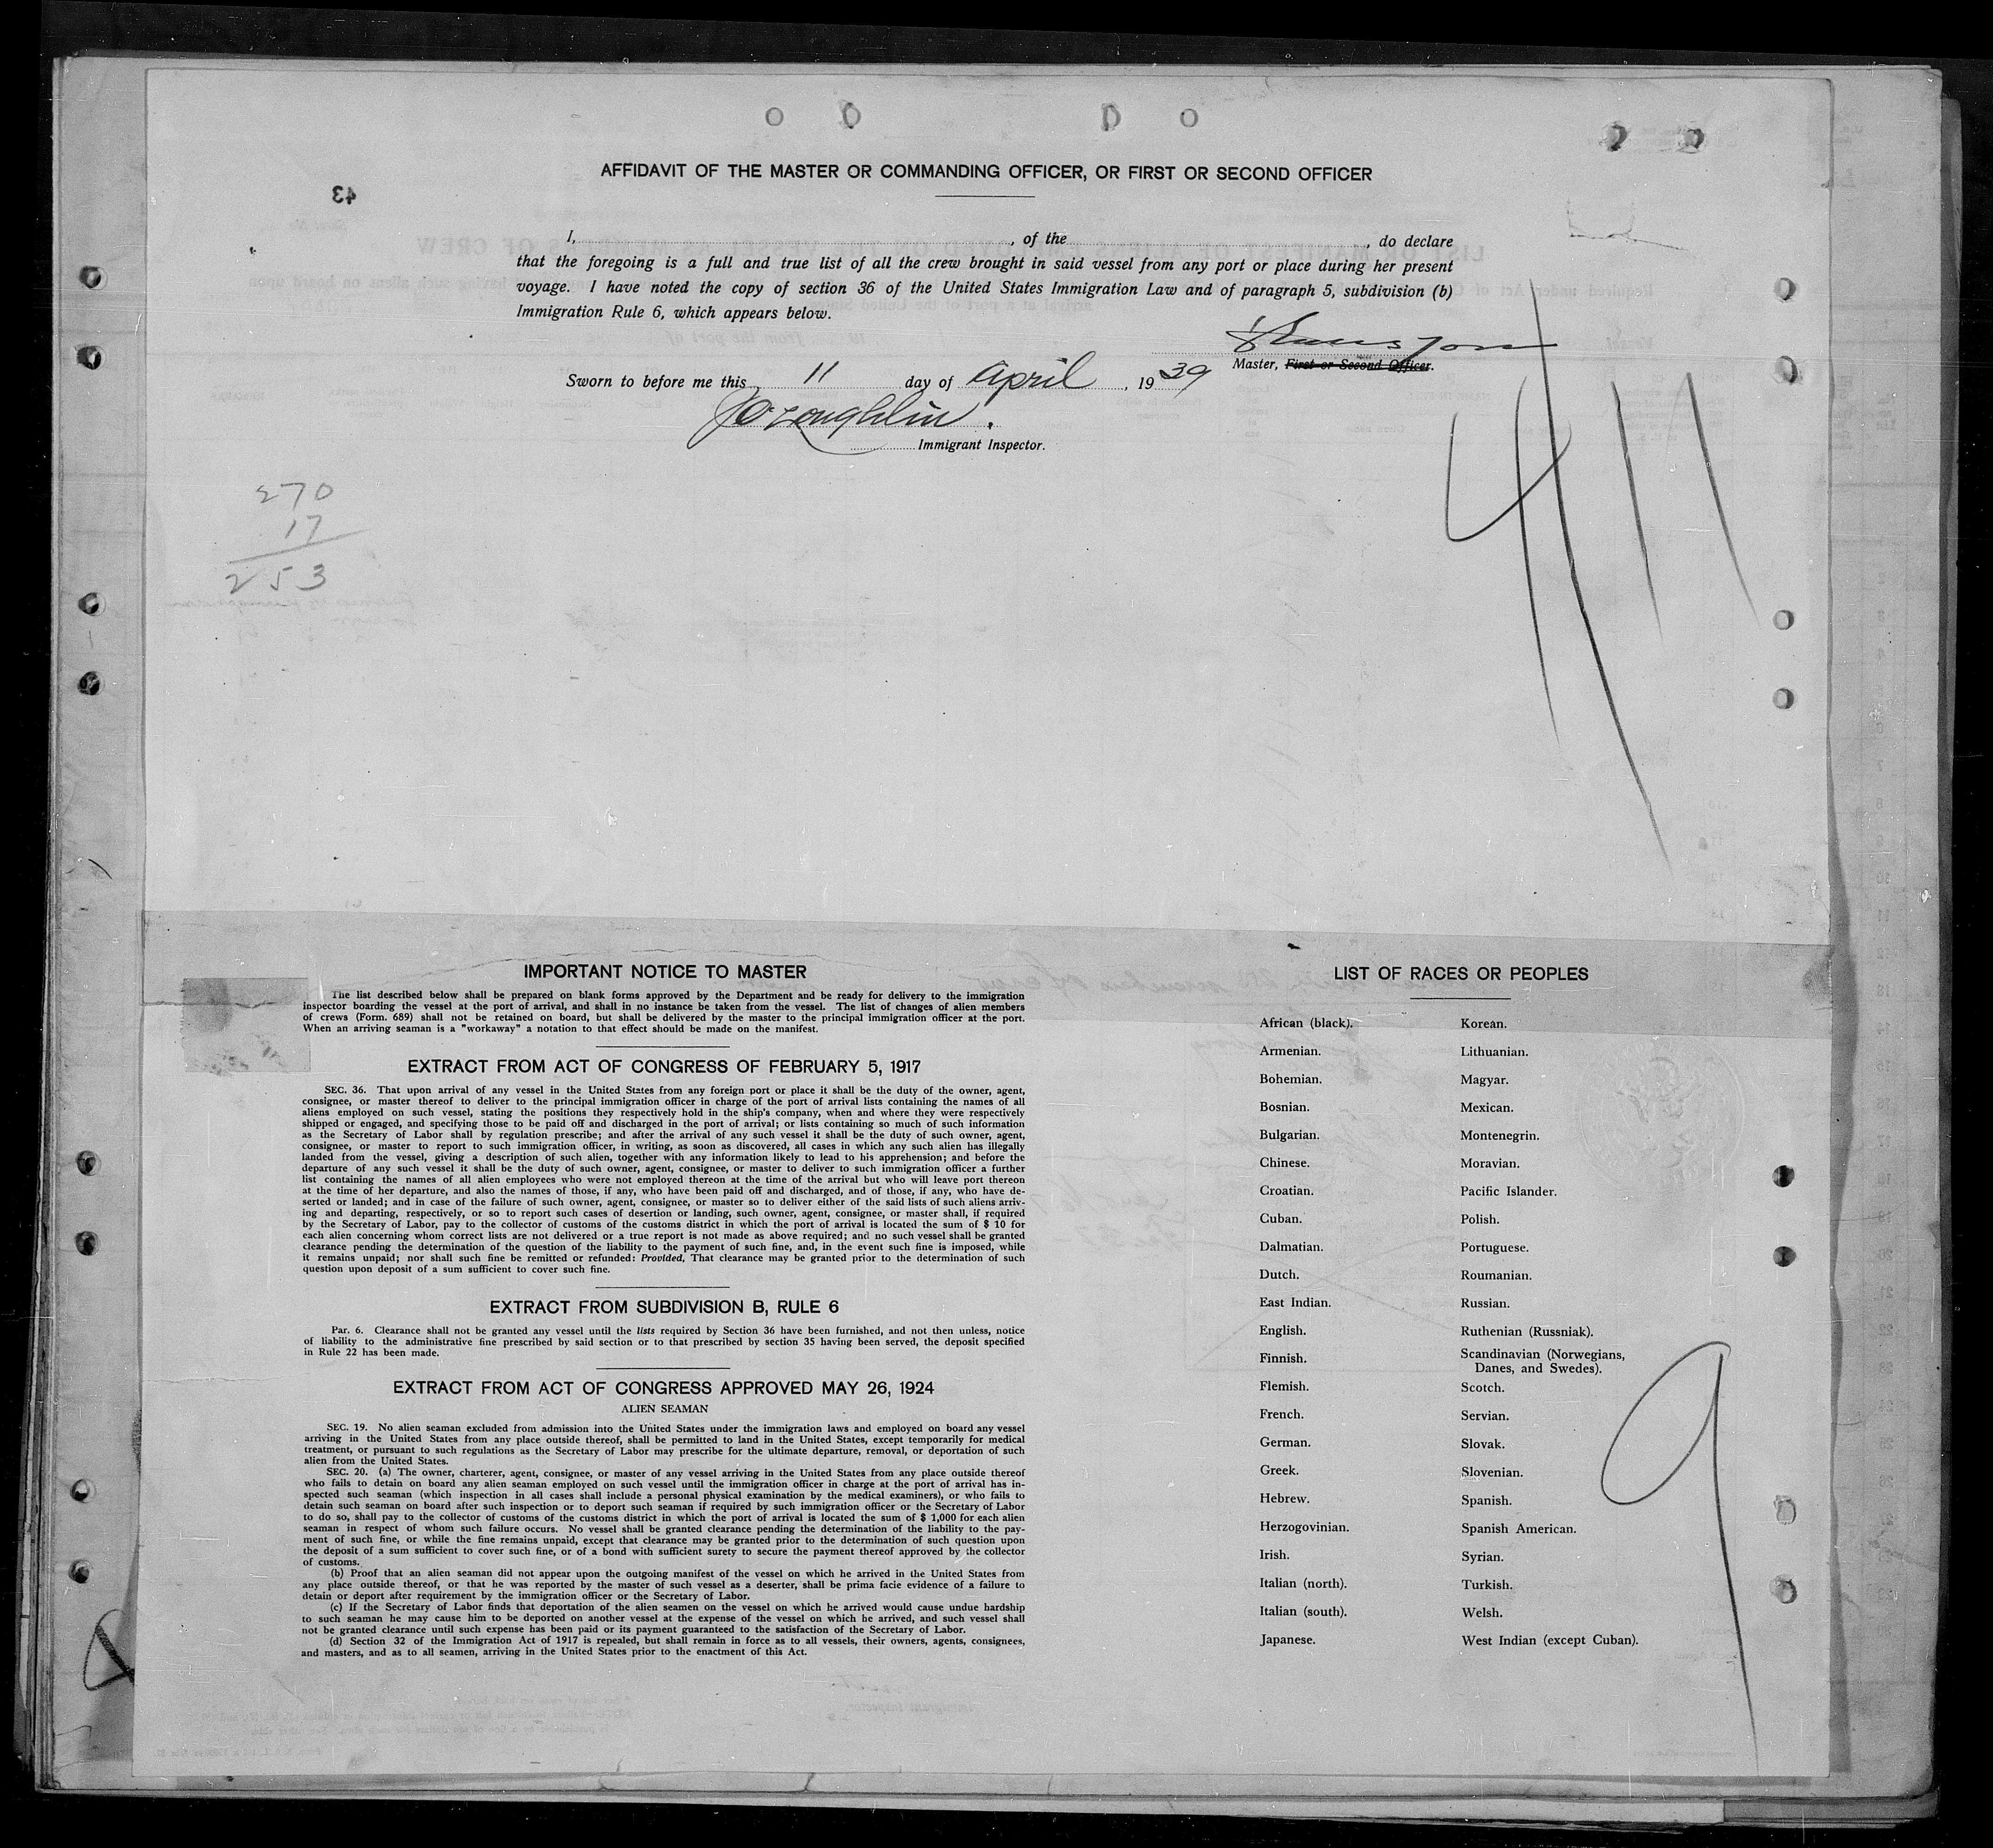 AFFIDAVIT OF THE MASTER OR COMMANDING OFFICER, OR FIRST OR SECOND OFFICER
43
I, , of the , do declare
that the foregoing is a full and true list of all the crew brought in said vessel from any port or place during her present
voyage. I have noted the copy of section 36 of the United States Immigration Law and of paragraph 5, subdivision (b)
Immigration Rule 6, which appears below.
Master, First or Second Officer.
Sworn to before me this 11 day of April, 1939
O'Loughlin.
Immigrant Inspector.
411
270
17
253
IMPORTANT NOTICE TO MASTER
The list described below shall be prepared on blank forms approved by the Department and be ready for delivery to the immigration
inspector boarding the vessel at the port of arrival, and shall in no instance be taken from the vessel. The list of changes of alien members
of crews (Form. 689) shall not be retained on board, but shall be delivered by the master to the principal immigration officer at the port.
When an arriving seaman is a "workaway" a notation to that effect should be made on the manifest.
EXTRACT FROM ACT OF CONGRESS OF FEBRUARY 5, 1917
SEC. 36. That upon arrival of any vessel in the United States from any foreign port or place it shall be the duty of the owner, agent,
consignee, or master thereof to deliver to the principal immigration officer in charge of the port of arrival lists containing the names of all
aliens employed on such vessel, stating the positions they respectively hold in the ship's company, when and where they were respectively
shipped or engaged, and specifying those to be paid off and discharged in the port of arrival; or lists containing so much of such information
as the Secretary of Labor shall by regulation prescribe; and after the arrival of any such vessel it shall be the duty of such owner, agent,
consignee, or master to report to such immigration officer, in writing, as soon as discovered, all cases in which any such alien has illegally
landed from the vessel, giving a description of such alien, together with any information likely to lead to his apprehension; and before the
departure of any such vessel it shall be the duty of such owner, agent, consignee, or master to deliver to such immigration officer a further
list containing the names of all alien employees who were not employed thereon at the time of the arrival but who will leave port thereon
at the time of her departure, and also the names of those, if any, who have been paid off and discharged, and of those, if any, who have de-
serted or landed; and in case of the failure of such owner, agent, consignee, or master so to deliver either of the said lists of such aliens arriv-
ing and departing, respectively, or so to report such cases of desertion or landing, such owner, agent, consignee, or master shall, if required
by the Secretary of Labor, pay to the collector of customs of the customs district in which the port of arrival is located the sum of $ 10 for
each alien concerning whom correct lists are not delivered or a true report is not made as above required; and no such vessel shall be granted
clearance pending the determination of the question of the liability to the payment of such fine, and, in the event such fine is imposed, while
it remains unpaid; nor shall such fine be remitted or refunded: Provided, That clearance may be granted prior to the determination of such
question upon deposit of a sum sufficient to cover such fine.
EXTRACT FROM SUBDIVISION B, RULE 6
Par. 6. Clearance shall not be granted any vessel until the lists required by Section 36 have been furnished, and not then unless, notice
of liability to the administrative fine prescribed by said section or to that prescribed by section 35 having been served, the deposit specified
in Rule 22 has been made.
EXTRACT FROM ACT OF CONGRESS APPROVED MAY 26, 1924
ALIEN SEAMAN
SEC. 19. No alien seaman excluded from admission into the United States under the immigration laws and employed on board any vessel
arriving in the United States from any place outside thereof, shall be permitted to land in the United States, except temporarily for medical
treatment, or pursuant to such regulations as the Secretary of Labor may prescribe for the ultimate departure, removal, or deportation of such
alien from the United States.
SEC. 20. (a) The owner, charterer, agent, consignee, or master of any vessel arriving in the United States from any place outside thereof
who fails to detain on board any alien seaman employed on such vessel until the immigration officer in charge at the port of arrival has in-
spected such seaman (which inspection in all cases shall include a personal physical examination by the medical examiners), or who fails to
detain such seaman on board after such inspection or to deport such seaman if required by such immigration officer or the Secretary of Labor
to do so, shall pay to the collector of customs of the customs district in which the port of arrival is located the sum of $ 1,000 for each alien
seaman in respect of whom such failure occurs. No vessel shall be granted clearance pending the determination of the liability to the pay-
ment of such fine, or while the fine remains unpaid, except that clearance may be granted prior to the determination of such question upon
the deposit of a sum sufficient to cover such fine, or of a bond with sufficient surety to secure the payment thereof approved by the collector
of customs.
(b) Proof that an alien seaman did not appear upon the outgoing manifest of the vessel on which he arrived in the United States from
any place outside thereof, or that he was reported by the master of such vessel as a deserter, shall be prima facie evidence of a failure to
detain or deport after requirement by the immigration officer or the Secretary of Labor.
(c) If the Secretary of Labor finds that deportation of the alien seamen on the vessel on which he arrived would cause undue hardship
to such seaman he may cause him to be deported on another vessel at the expense of the vessel on which he arrived, and such vessel shall
not be granted clearance until such expense has been paid or its payment guaranteed to the satisfaction of the Secretary of Labor.
(d) Section 32 of the Immigration Act of 1917 is repealed, but shall remain in force as to all vessels, their owners, agents, consignees,
and masters, and as to all seamen, arriving in the United States prior to the enactment of this Act.
LIST OF RACES OR PEOPLES
African (black).
Armenian.
Bohemian.
Bosnian.
Bulgarian.
Chinese.
Croatian.
Cuban.
Dalmatian.
Dutch.
East Indian.
English.
Finnish.
Flemish.
French.
German.
Greek.
Hebrew.
Herzogovinian.
Irish.
Italian (north).
Italian (south).
Japanese.
Korean.
Lithuanian.
Magyar.
Mexican.
Montenegrin.
Moravian.
Pacific Islander.
Polish.
Portuguese.
Roumanian.
Russian.
Ruthenian (Russniak).
Scandinavian (Norwegians,
Danes, and Swedes).
Scotch.
Servian.
Slovak.
Slovenian.
Spanish.
Spanish American.
Syrian.
Turkish.
Welsh.
West Indian (except Cuban).
9